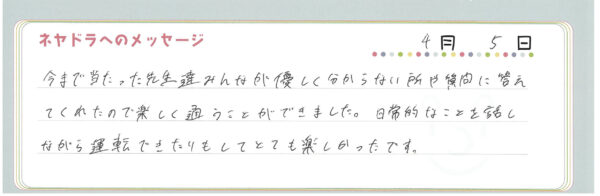 ネヤドラへのメッセージ
4月 5日
今まで当たった先生達みんなが優しく分からない所や質問に答え
てくれたので楽しく通うことができました。日常的なことを話し
ながら運転できたりもしてとても楽しかったです。